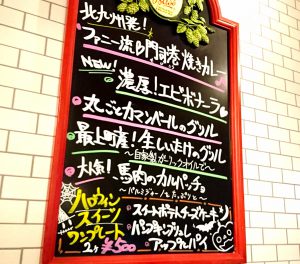 北九州発!
ファニー流門司港焼きカレー
NEW!
濃厚!エビボナーラ
丸ごとカマンベールのグリル
最上町産!生しいたけのグリル
〜自家製ガーリックオイルで〜
大人気!馬肉のカルパッチョ
〜パルミジャーノをたっぷりと〜
ハロウィン
スイーツ
ワンプレート
2ヶ ¥500
・スイートポテトチーズケーキ
・パンプキンブリュレ
・アップルパイ